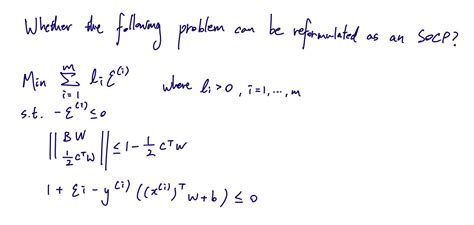 Whether the following problem can be reformulated as an SOCP?
Min ∑_{i=1}^{m} l_i ε^{(i)} where l_i > 0, i=1,...,m
s.t. -ε^{(i)} ≤ 0
‖ BW ; ½ c^T W ‖ ≤ 1 - ½ c^T w
1 + ε_i - y^{(i)} ((x^{(i)})^T w + b) ≤ 0